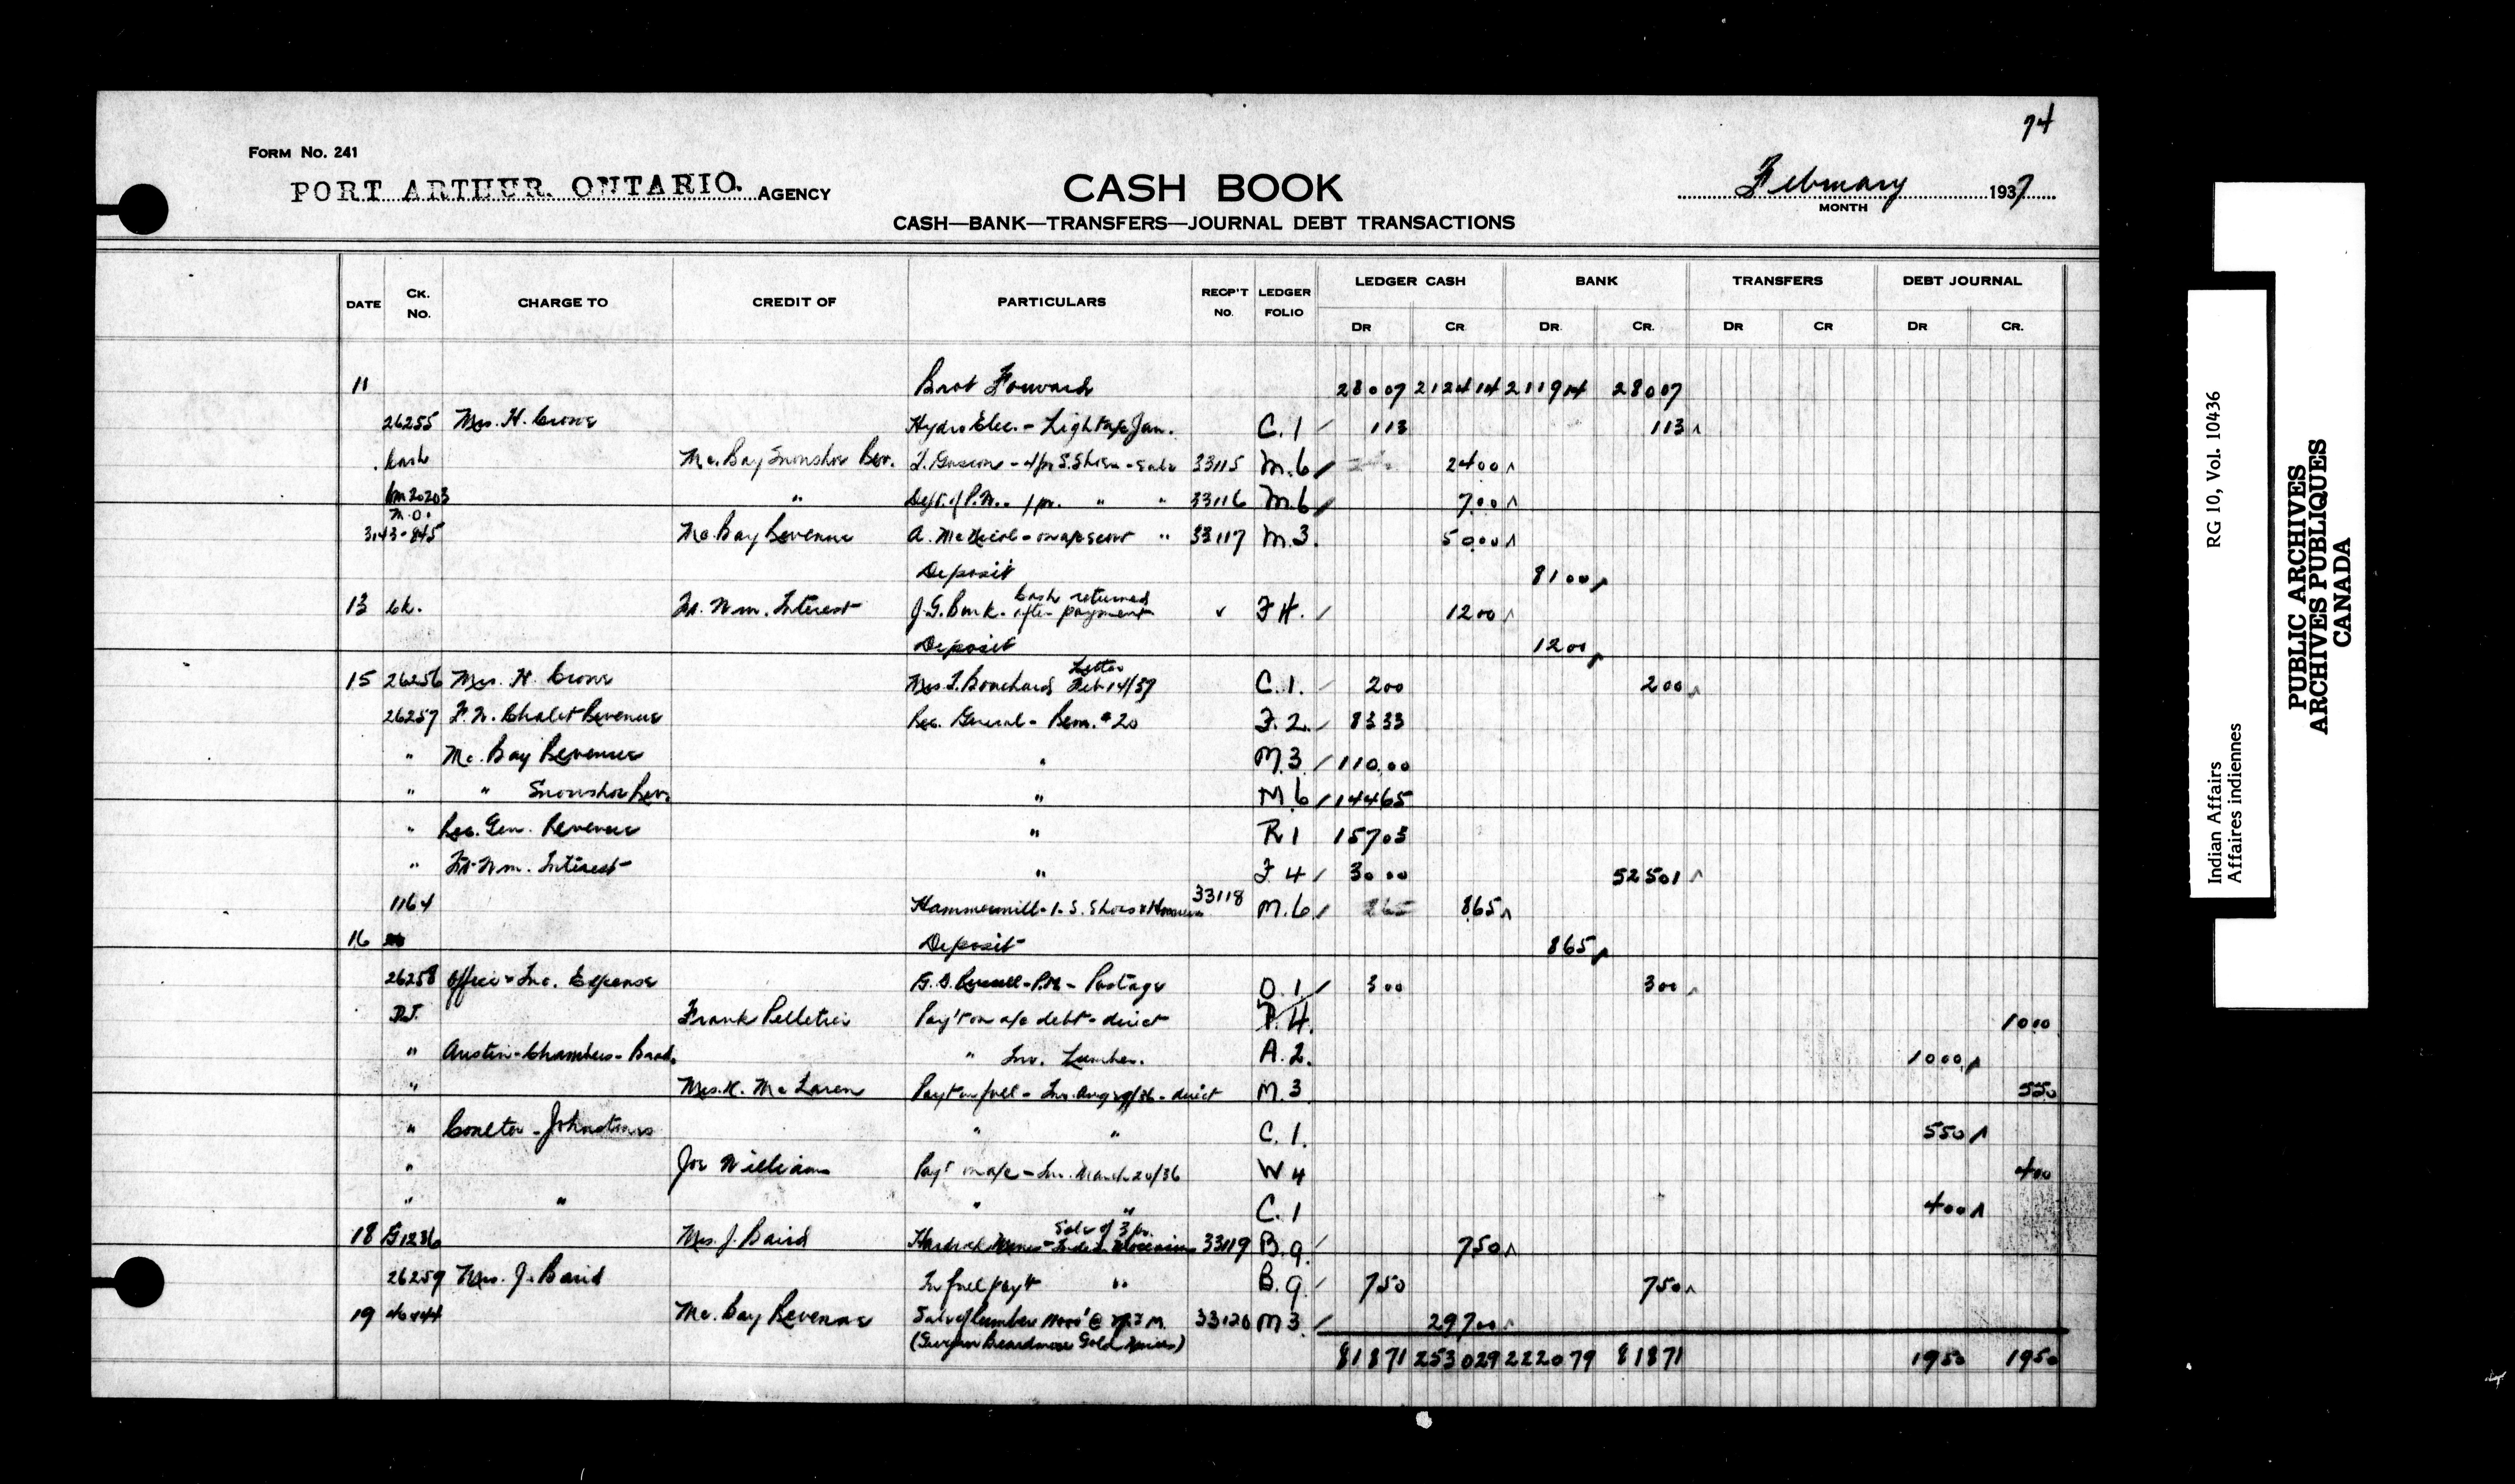 74
FORM NO. 241
PORT ARTHUR. ONTARIO. AGENCY
CASH BOOK
February 1937
MONTH
CASH—BANK—TRANSFERS—JOURNAL DEBT TRANSACTIONS
DATE CK. NO. CHARGE TO CREDIT OF PARTICULARS RECP'T NO. LEDGER FOLIO LEDGER CASH BANK TRANSFERS DEBT JOURNAL
DR CR. DR. CR. DR CR DR CR.
11 Brot Forward 28007 212414 211914 28007
26255 Mrs. H. Crowe Hydro Elec. - Light Jan. C. 1 113 113
Cash Mc. Bay Snowshoe Rev. 33115 M. 6 2400
20203 " Dept. of 1 pr. " " 33116 M. 6 700
M.O.
3143-845 Mc. Bay Revenue A. McNicol - on a/c " 33117 M. 3. 5000
Deposit 8100
13 Ck. Ft. Wm. Interest J. G. Burk. Cash returned after payment F 4. 1200
Deposit 1200
15 26256 Mrs. H. Crowe Mrs Bouchard Letter Feb 14/37 C. 1. 200 200
26257 Chalet Revenue Rec. General - Rem. # 20 F. 2. 8333
" Mc. Bay Revenue " M. 3 11000
" " Snowshoe Rev. " M. 6 14465
" Rec. Gen. Revenue " R 1 15703
" Ft. Wm. Interest " F 4 3000 52501
1164 Hammermill - 1. S. Shoes 33118 M. 6 865
16 Deposit 865
26258 Office Expense Russell - P.M. - Postage O. 1. 300 300
D.J. Frank Pelletier Pay't on a/c debt - direct P. 4. 1000
" Austin-Chambers- " Inv. Lumber. A. 2. 1000
" Mrs. McLaren Pay't in full - Inv. Aug /36 - direct M. 3 550
" Coulter - Johnstons " " C. 1. 550
" Joe Williams Pay't on a/c - Inv. March 20/36 W 4 400
" " " " C. 1 400
18 G1236 Mrs. J. Baird Sale of 3 pr. Moccasins 33119 B. 9 750
26259 Mrs. J. Baird In full pay't " B. 9 750 750
19 Mc. Bay Revenue Sale of lumber 33120 M 3. 29700
(Beardmore Gold Mines)
81871 253029 222079 81871 1950 1950
Indian Affairs RG 10, Vol. 10436
Affaires indiennes
PUBLIC ARCHIVES
ARCHIVES PUBLIQUES
CANADA